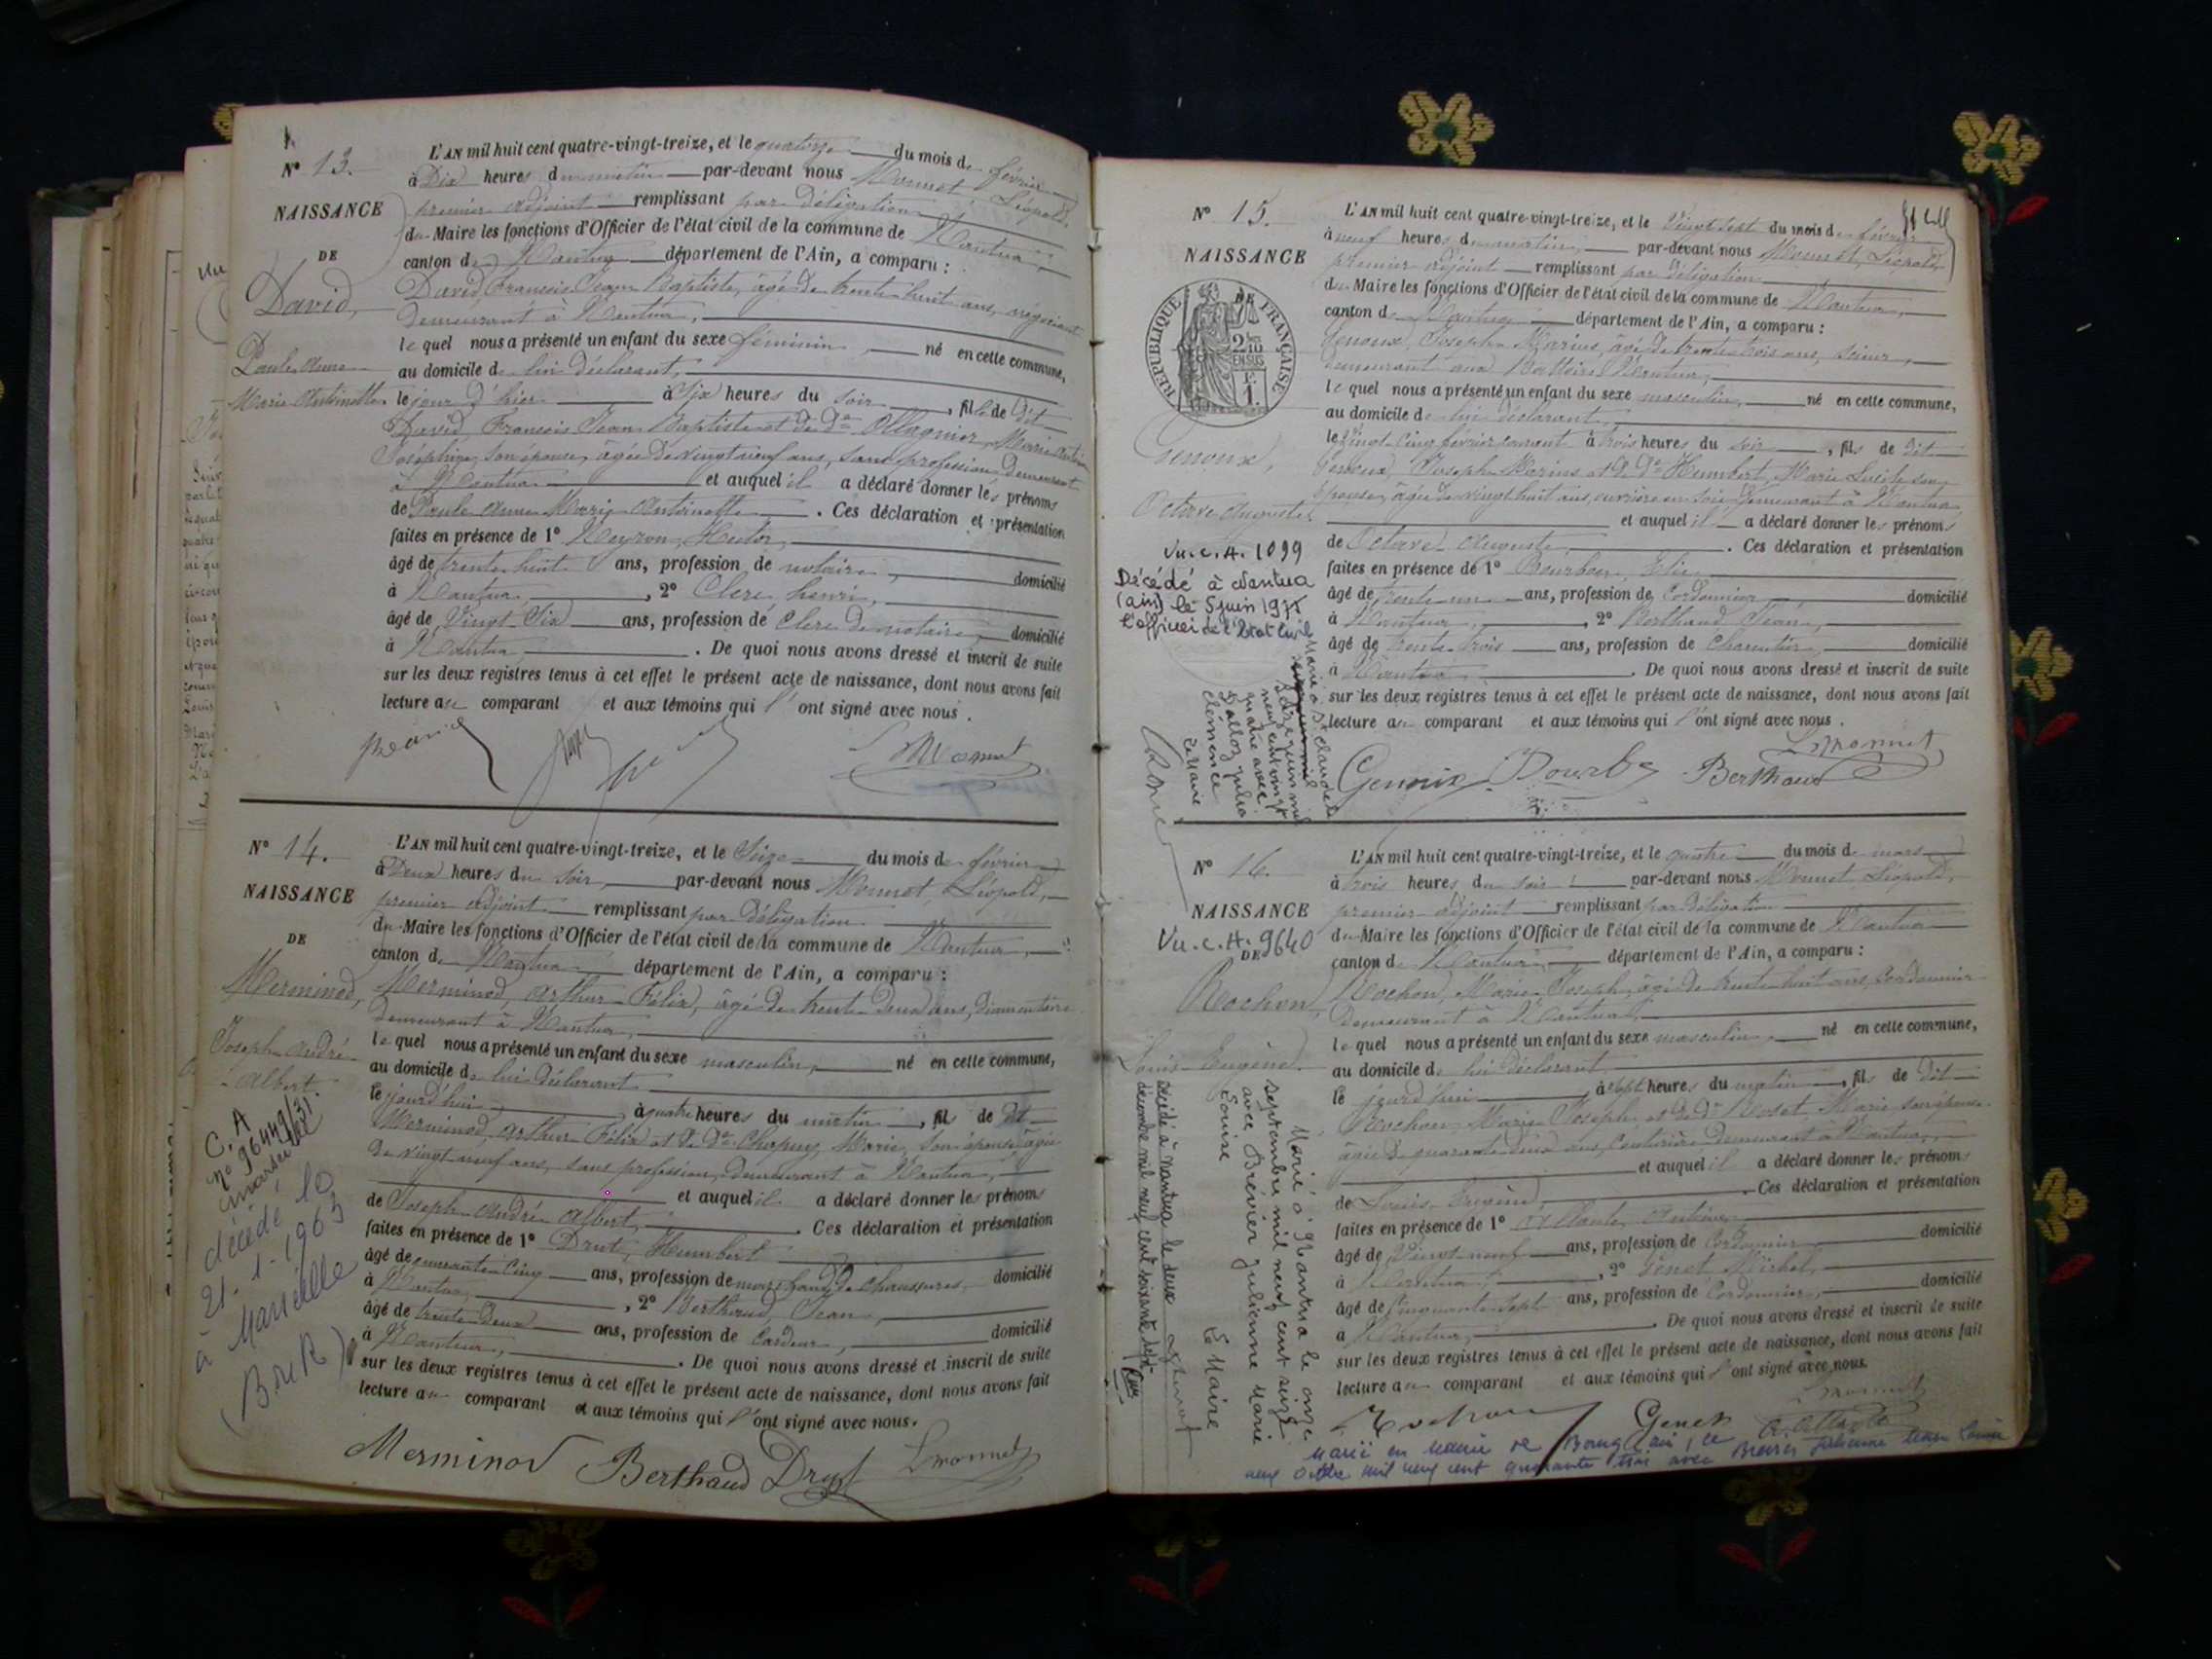 N° 13.
NAISSANCE
DE
David,
Paule Anne
Marie Antoinette.
L'AN mil huit cent quatre-vingt-treize, et le quatorze du mois de février
à Dix heures du matin par-devant nous Monnet Léopold,
premier adjoint remplissant par Délégation
du Maire les fonctions d'Officier de l'état civil de la commune de Nantua,
canton de Nantua département de l'Ain, a comparu :
David, François Jean Baptiste, âgé de trente huit ans, négociant
demeurant à Nantua,
lequel nous a présenté un enfant du sexe féminin né en cette commune,
au domicile de lui déclarant,
le jour d'hier à Six heures du soir, fille de Dit
David, François Jean Baptiste et de De Ollagnier, Marie
Joséphine, son épouse, âgée de vingt neuf ans, sans profession, demeurant
à Nantua et auquel il a déclaré donner les prénoms
de Paule Anne Marie Antoinette. Ces déclaration et présentation
faites en présence de 1° Neyron, Hector,
âgé de trente huit ans, profession de notaire, domicilié
à Nantua, 2° Clerc henri,
âgé de Vingt Six ans, profession de Clerc de notaire, domicilié
à Nantua. De quoi nous avons dressé et inscrit de suite
sur les deux registres tenus à cet effet le présent acte de naissance, dont nous avons fait
lecture au comparant et aux témoins qui l'ont signé avec nous.
LMonnet
N° 14.
NAISSANCE
DE
Merminod,
Joseph André
Albert
C. A
n° 96449/31.
décédé le
21-1-1963
à Marseille
(B du R)
L'AN mil huit cent quatre-vingt-treize, et le Seize du mois de février
à Deux heures du soir, par-devant nous Monnet, Léopold,
premier adjoint remplissant par Délégation
du Maire les fonctions d'Officier de l'état civil de la commune de Nantua,
canton de Nantua département de l'Ain, a comparu :
Merminod, Arthur Félix, âgé de trente Deux ans, Diamantaire
demeurant à Nantua,
lequel nous a présenté un enfant du sexe masculin, né en cette commune,
au domicile de lui déclarant
le jourd'hui à quatre heures du matin, fils de Dit
Merminod, Arthur Félix et de De Chapuy, Marie, Son épouse, âgée
de vingt neuf ans, sans profession, demeurant à Nantua,
et auquel il a déclaré donner les prénoms
de Joseph André Albert. Ces déclaration et présentation
faites en présence de 1° Drut, Humbert
âgé de quarante Cinq ans, profession de marchand de Chaussures, domicilié
à Nantua, 2° Berthaud, Jean,
âgé de trente Deux ans, profession de Cardeur, domicilié
à Nantua. De quoi nous avons dressé et inscrit de suite
sur les deux registres tenus à cet effet le présent acte de naissance, dont nous avons fait
lecture au comparant et aux témoins qui l'ont signé avec nous.
Merminod Berthaud Drut LMonnet
N° 15.
NAISSANCE
DE
REPUBLIQUE FRANÇAISE
2/10
EN SUS
F.
1.
Genoux,
Octave Auguste
Vu. c. A. 1099
Décédé à Nantua
(ain) le 5 juin 1975
L'officier de l'état civil
Marié à St Claude le
juin mil
neuf cent vingt
quatre avec
Dalloz Julia
Clémence
Le Maire
L'AN mil huit cent quatre-vingt-treize, et le Vingt Sept du mois de février
à neuf heures du matin, par-devant nous Monnet, Léopold,
premier adjoint remplissant par Délégation
du Maire les fonctions d'Officier de l'état civil de la commune de Nantua,
canton de Nantua département de l'Ain, a comparu :
Genoux, Joseph Marius, âgé de trente trois ans, Scieur,
demeurant aux Battoirs Nantua,
lequel nous a présenté un enfant du sexe masculin, né en cette commune,
au domicile de lui déclarant,
le Vingt Cinq février courant à trois heures du soir, fils de Dit
Genoux, Joseph Marius et de De Humbert, Marie Lucile son
épouse, âgée de vingt huit ans, ouvrière en soie, demeurant à Nantua,
et auquel il a déclaré donner les prénoms
de Octave Auguste. Ces déclaration et présentation
faites en présence de 1° Bourbon, Elie
âgé de trente un ans, profession de Cordonnier domicilié
à Nantua, 2° Berthaud Jean,
âgé de trente trois ans, profession de Charretier, domicilié
à Nantua. De quoi nous avons dressé et inscrit de suite
sur les deux registres tenus à cet effet le présent acte de naissance, dont nous avons fait
lecture au comparant et aux témoins qui l'ont signé avec nous.
Berthaud LMonnet
N° 16.
NAISSANCE
Vu. c. A. 9640
DE
Rochon,
Louis Eugène.
Marié à Nantua le onze
septembre mil neuf cent seize
avec Brévier Julienne Marie
Louise
Le Maire
décédé à Nantua le deux
décembre mil neuf cent soixante sept
L'AN mil huit cent quatre-vingt-treize, et le quatre du mois de mars
à trois heures du soir par-devant nous Monnet Léopold,
premier adjoint remplissant par Délégation
du Maire les fonctions d'Officier de l'état civil de la commune de Nantua
canton de Nantua, département de l'Ain, a comparu :
Rochon, Marie Joseph, âgé de trente huit ans, Cordonnier
demeurant à Nantua,
lequel nous a présenté un enfant du sexe masculin, né en cette commune,
au domicile de lui déclarant
le jourd'hui à sept heures du matin, fils de Dit
Rochon, Marie Joseph et de De Marie son épouse
âgée de quarante deux ans, Couturière demeurant à Nantua,
et auquel il a déclaré donner les prénoms
de Louis Eugène. Ces déclaration et présentation
faites en présence de 1° Antoine
âgé de Vingt-neuf ans, profession de Cordonnier domicilié
à Nantua, 2° Genet Michel,
âgé de Cinquante Sept ans, profession de Cordonnier, domicilié
à Nantua, De quoi nous avons dressé et inscrit de suite
sur les deux registres tenus à cet effet le présent acte de naissance, dont nous avons fait
lecture au comparant et aux témoins qui l'ont signé avec nous.
Rochon Genet LMonnet
Marié en Mairie de Bourg (ain) le
neuf octobre mil neuf cent quarante trois avec Julienne Marie Louise